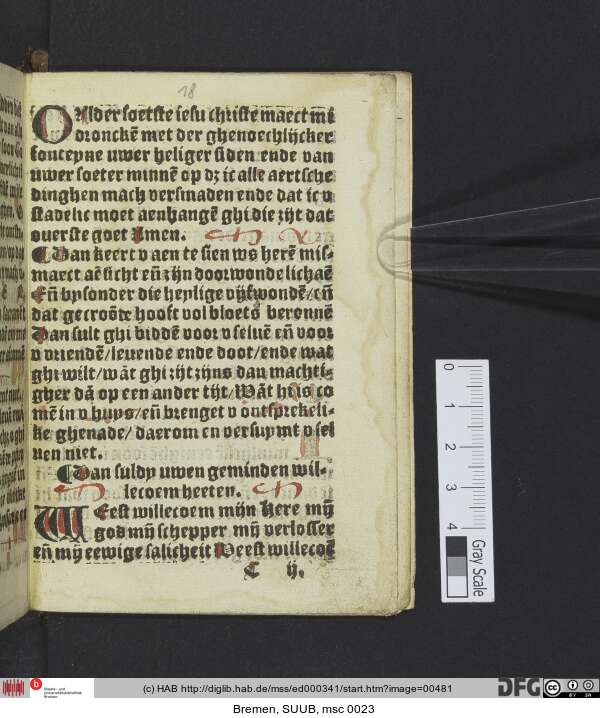 18
O Alder soetste iesu christe maect mi
dronckē met der ghenoechlijcker
fonteyne uwer heliger siden ende van
uwer soeter minnē op dz ic alle aertsche
dinghen mach versmaden ende dat ic v
stadelic moet aenhangē ghi die zijt dat
ouerste goet Amen.
Dan keert v aen te sien ws herē mis-
maect aēsicht eñ zijn doorwonde lichaē
Eñ bysonder die heylige vijfwondē/eñ
dat gecroōde hooft vol bloets beronnē
Dan sult ghi biddē voor v seluē eñ voor
v vriendē/leuende ende doot/ende wat
ghi wilt/wāt ghi zijt zijns dan machti-
gher dā op een ander tijt/Wāt hi is co
mē in v huys/eñ brenget v ontsprekeli-
ke ghenade/daerom en versuymt v sel
uen niet.
Dan suldy uwen geminden wil-
lecoem heeten.
WEest willecoem mijn here mij
god mij schepper mij verlosser
eñ mij eewige salicheit Weest willecoē
C ij.
0
1
2
3
4
Gray Scale
Staats- und
Universitätsbibliothek
Bremen
(c) HAB http://diglib.hab.de/mss/ed000341/start.htm?image=00481
DFG
CC BY SA
Bremen, SUUB, msc 0023